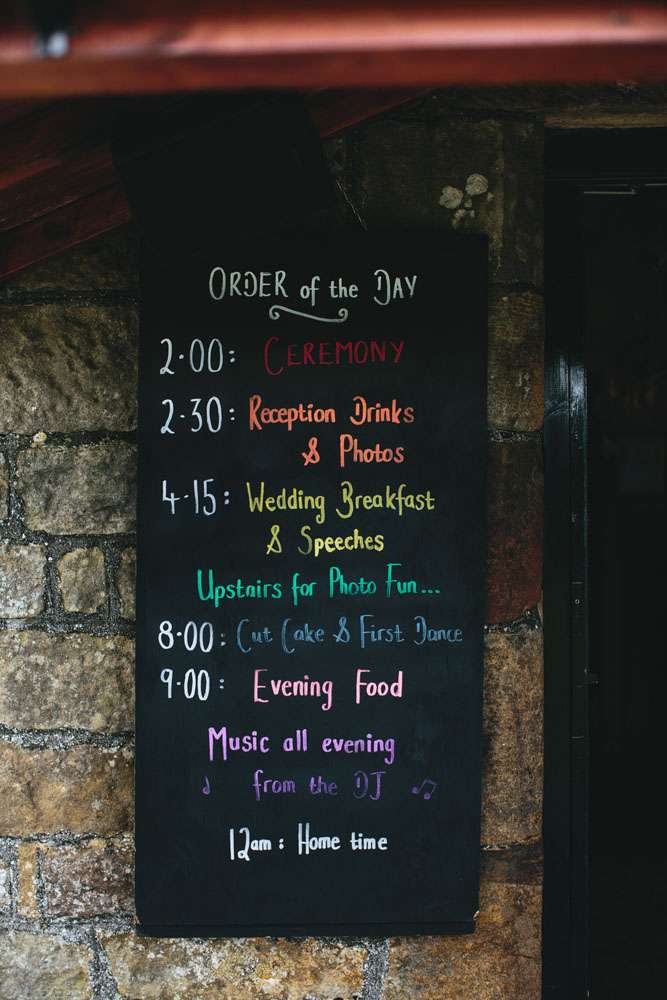 ORDER of the DAY
2.00: CEREMONY
2.30: Reception Drinks
& Photos
4.15: Wedding Breakfast
& Speeches
Upstairs for Photo Fun...
8.00: Cut Cake & First Dance
9.00: Evening Food
Music all evening
from the DJ
12am: Home time